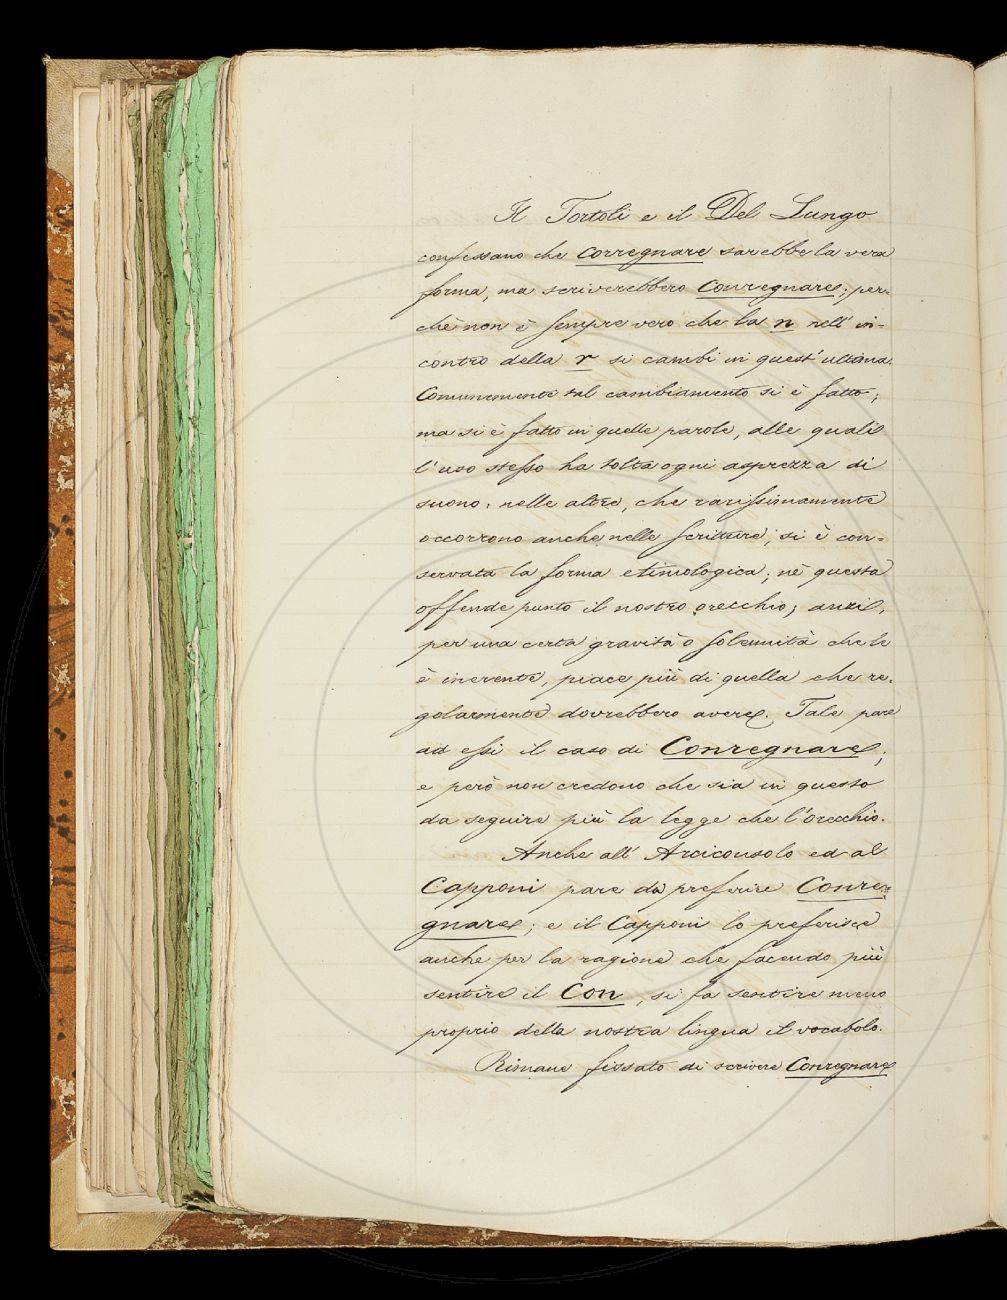 Il Tortoli e il Del Lungo
confessano che corregnare sarebbe la vera
forma, ma scriverebbero Conregnare; per-
chè non è sempre vero che la n nell' in-
contro della r si cambi in quest' ultima.
Comunemente tal cambiamento si è fatto;
ma si è fatto in quelle parole, alle quali
l'uso stesso ha tolta ogni asprezza di
suono: nelle altre, che rarissimamente
occorrono anche nelle scritture, si è con-
servata la forma etimologica; nè questa
offende punto il nostro orecchio; anzi,
per una certa gravità o solennità che le
è inerente, piace più di quella che re-
golarmente dovrebbero avere. Tale pare
ad essi il caso di Conregnare;
e però non credono che sia in questo
da seguire più la legge che l'orecchio.
Anche all' Arciconsolo ed al
Capponi pare da preferire Conre-
gnare; e il Capponi lo preferisce
anche per la ragione che facendo più
sentire il Con, si fa sentire meno
proprio della nostra lingua il vocabolo.
Rimane fissato di scrivere Conregnare